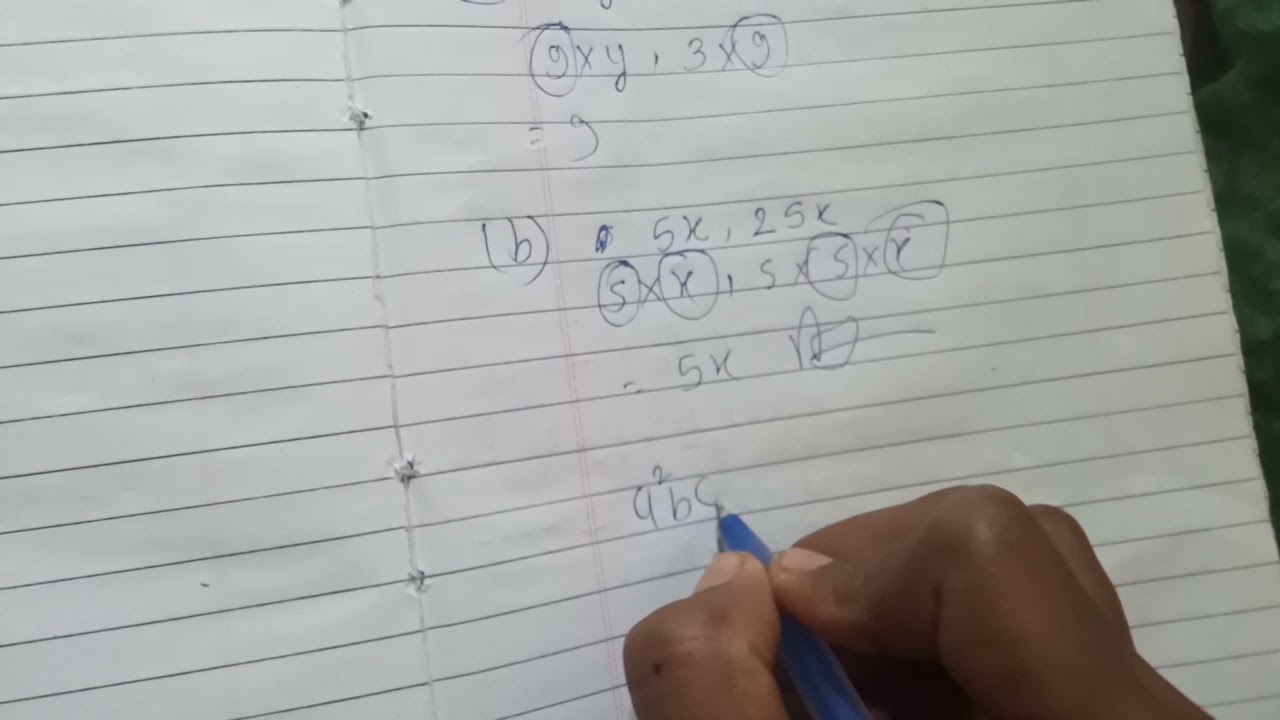 9 x y , 3 x 9
= 9
(b) 5x , 25x
5 x x , 5 x 5 x x
= 5x
a²bc